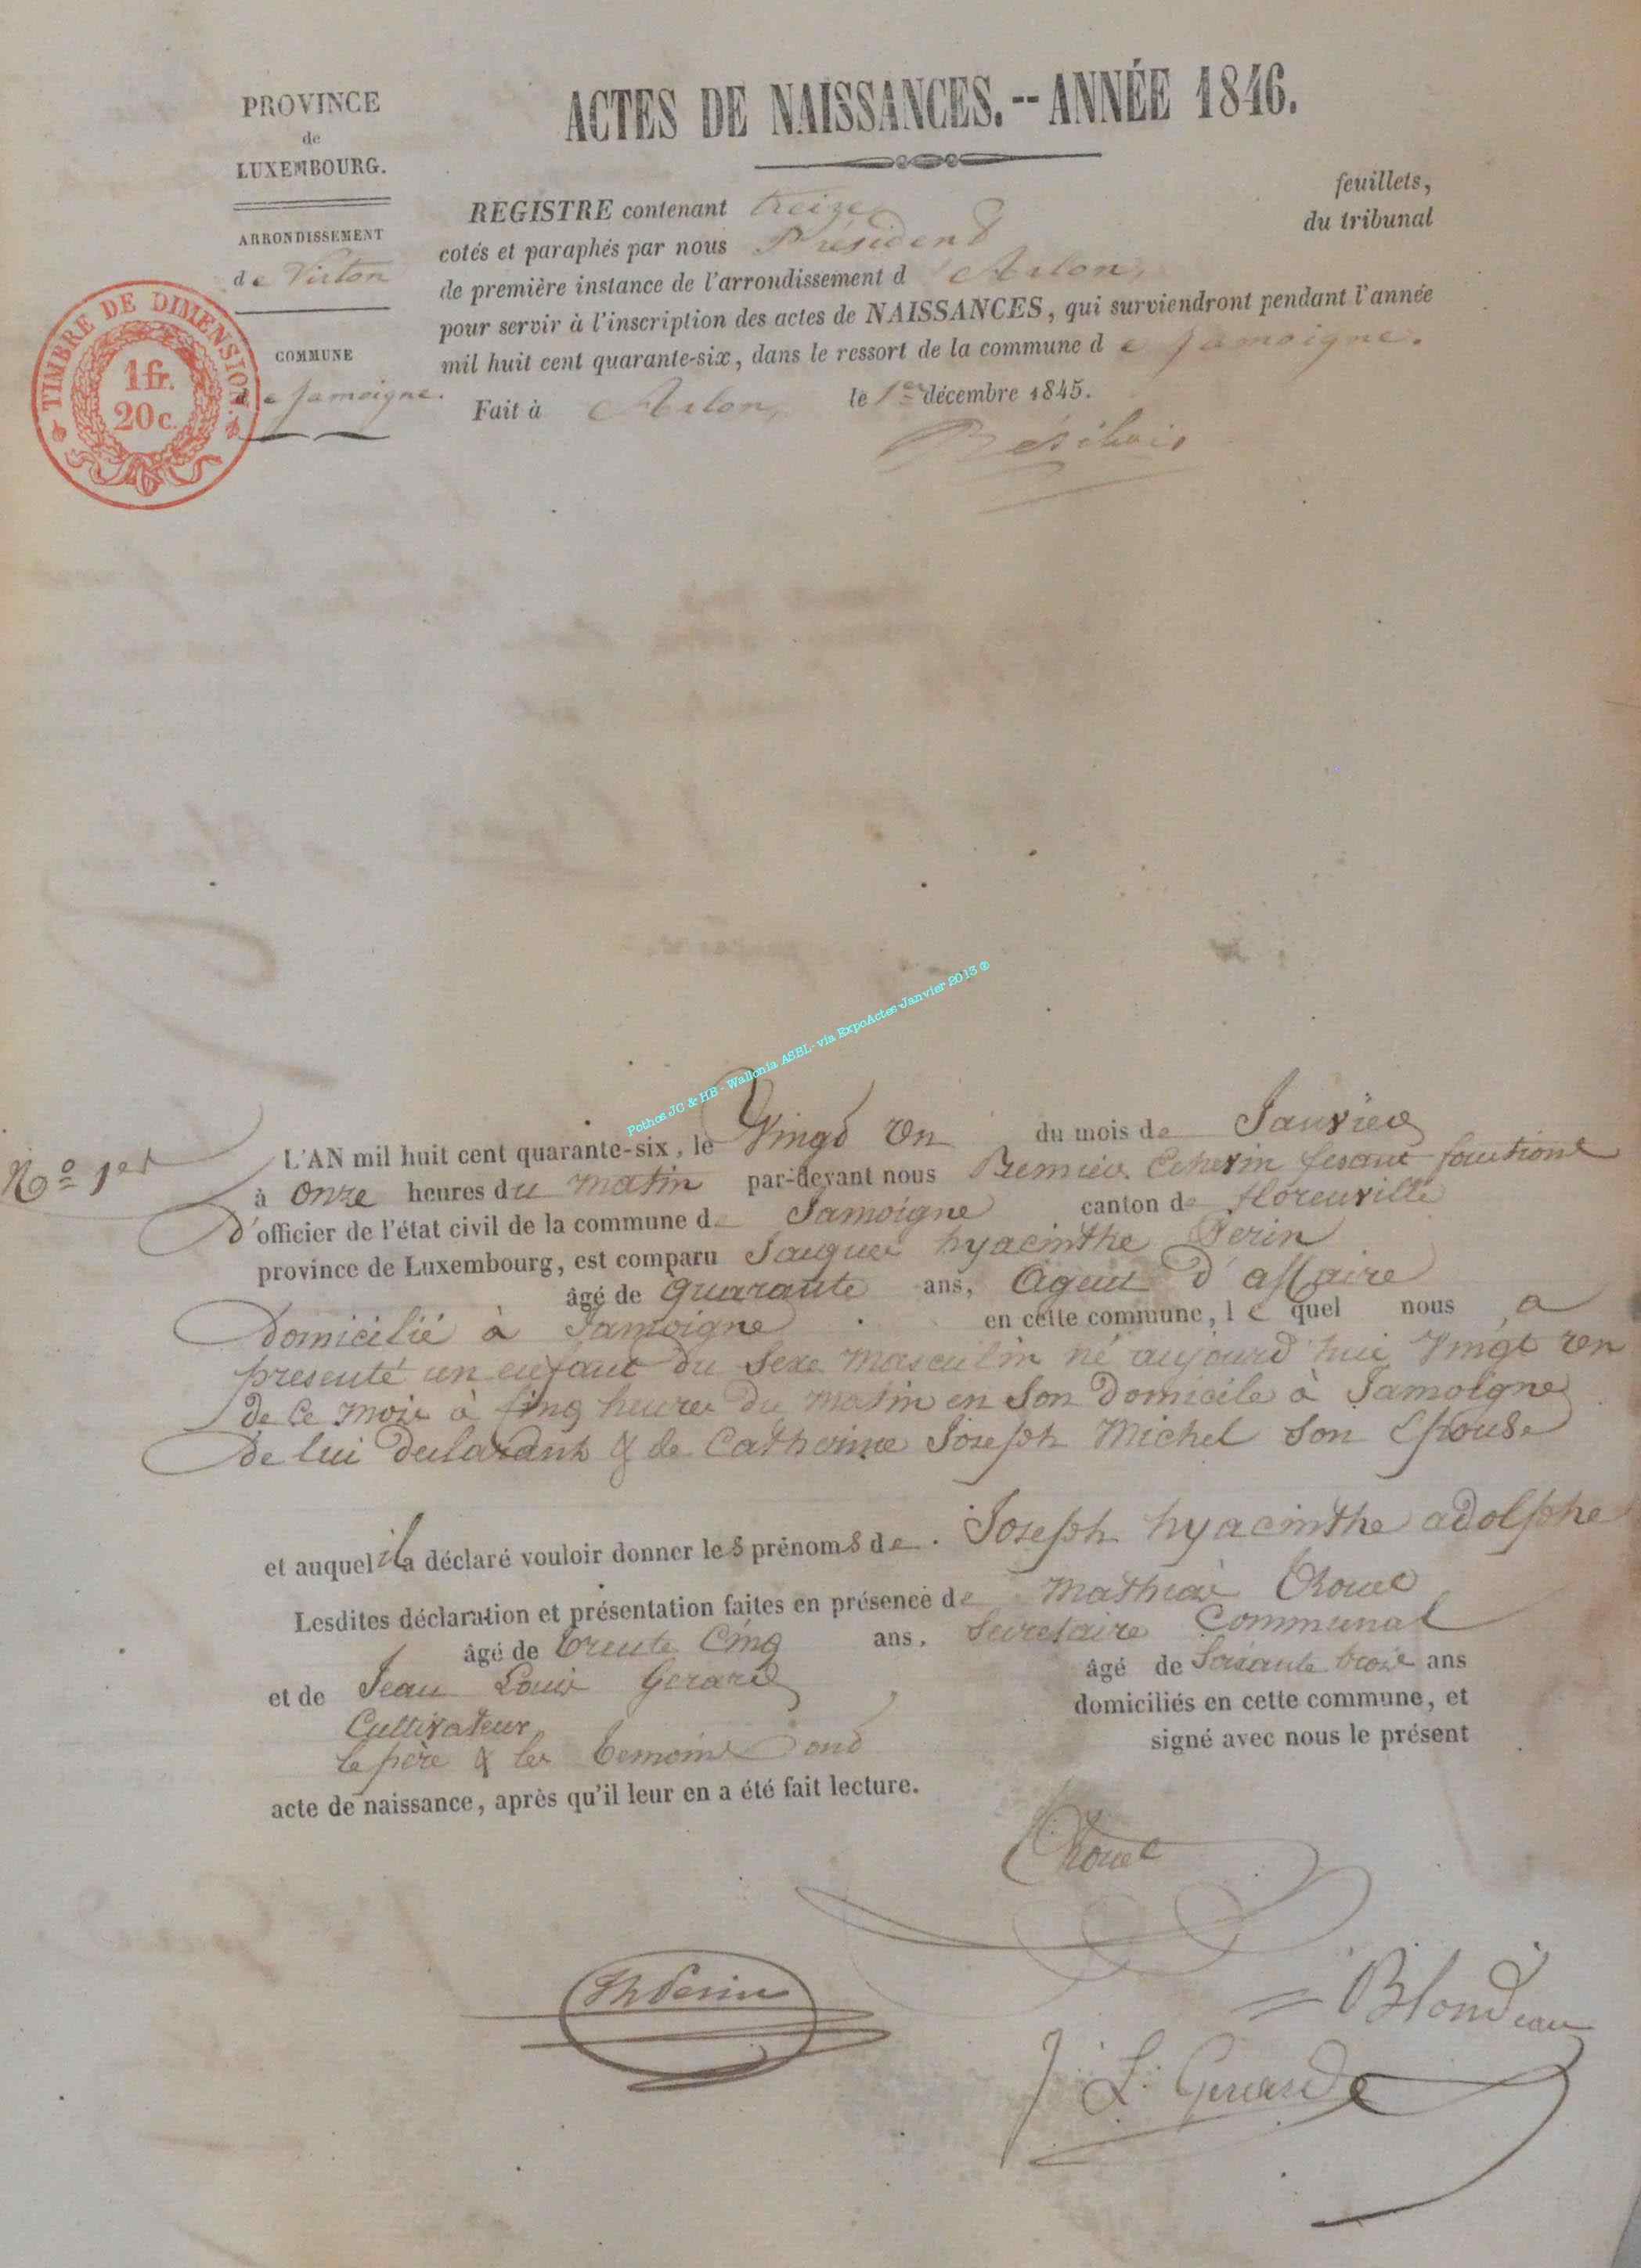 PROVINCE
de
LUXEMBOURG.
ARRONDISSEMENT
de Virton
COMMUNE
de Jamoigne.
TIMBRE DE DIMENSION.
1 fr.
20 c.
ACTES DE NAISSANCES. -- ANNÉE 1846.
REGISTRE contenant treize feuillets,
cotés et paraphés par nous Président du tribunal
de première instance de l'arrondissement d'Arlon,
pour servir à l'inscription des actes de NAISSANCES, qui surviendront pendant l'année
mil huit cent quarante-six, dans le ressort de la commune de Jamoigne.
Fait à Arlon, le 1er décembre 1845.
Pothos JC & HB - Wallonia ASBL- via ExpoActes Janvier 2013 ®
No 1er
L'AN mil huit cent quarante-six, le Vingt un du mois de Janvier
à onze heures du matin par-devant nous Premier Echevin fesant fonctions
d'officier de l'état civil de la commune de Jamoigne canton de florenville
province de Luxembourg, est comparu Jacques hyacinthe Perin
âgé de quarante ans, Agent d'affaire
domicilié à Jamoigne en cette commune, lequel nous a
presenté un enfant du sexe masculin né aujourd'hui Vingt un
de ce mois à cinq heures du matin en son domicile à Jamoigne
de lui declarant & de Catherine Joseph Michel son Epouse
et auquel il a déclaré vouloir donner les prénoms de Joseph hyacinthe adolphe
Lesdites déclaration et présentation faites en présence de Mathias
âgé de trente cinq ans, Secretaire Communal
et de Jean Louis Gerard âgé de soixante trois ans
Cultivateur domiciliés en cette commune, et
le père & les temoins ont signé avec nous le présent
acte de naissance, après qu'il leur en a été fait lecture.
Perin
Blondeau
J. L. Gerard